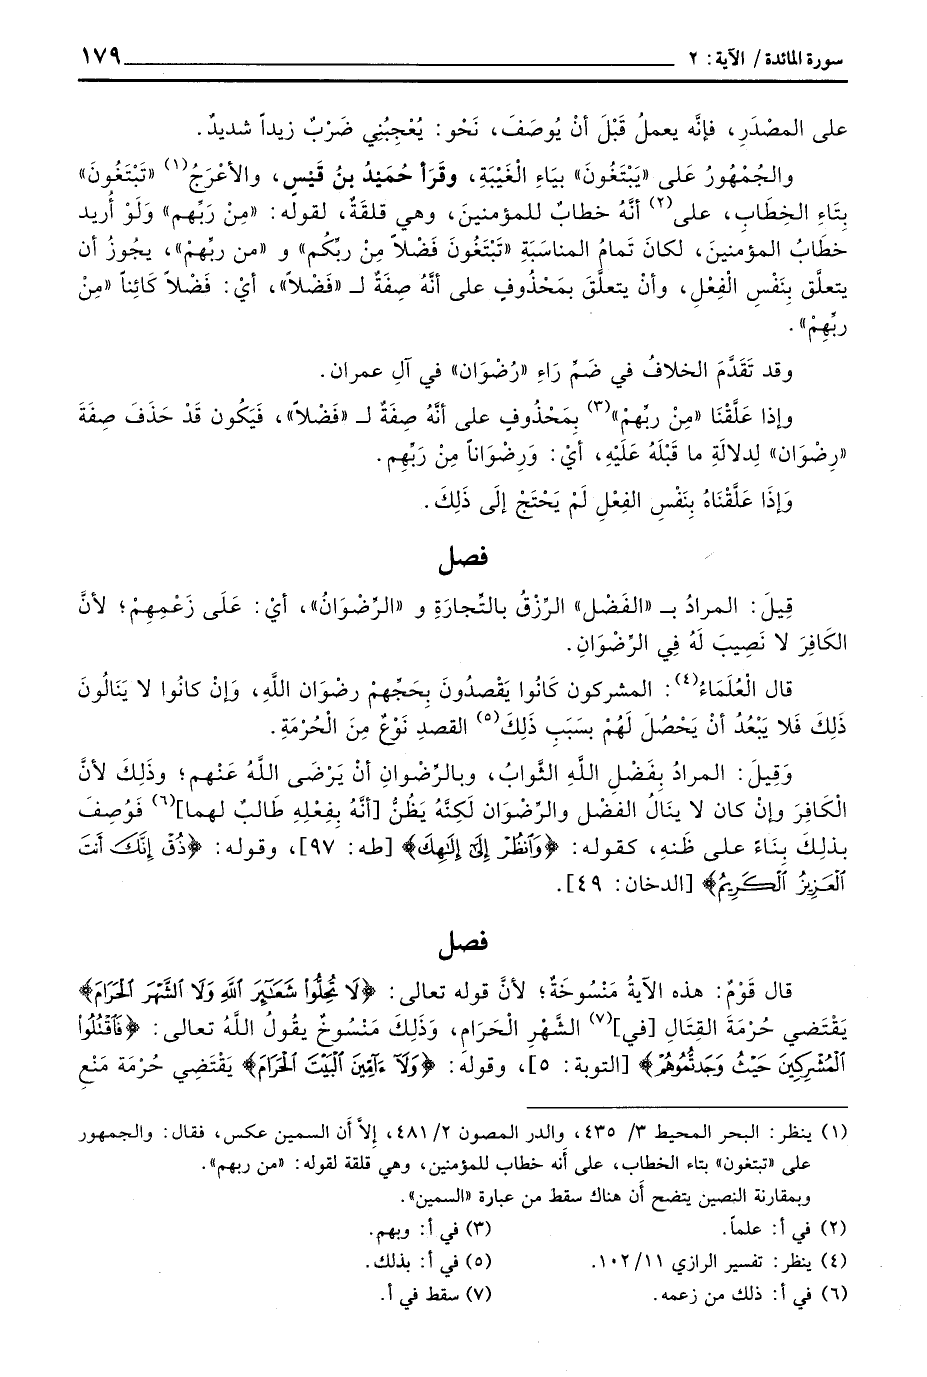 سورة المائدة/ الآية: ٢ ١٧٩
على المصْدَرِ، فإنَّه يعملُ قَبْلَ أنْ يُوصَفَ، نَحْو: يُعْجِبُنِي ضَرْبٌ زيداً شديدٌ.
والجُمْهُورُ عَلى «يَبْتَغُونَ» بيَاءِ الْغَيْبَةِ، وقَرَأ حُمَيْدُ بنُ قَيْسٍ، والأعْرَجُ(١) «تَبْتَغُونَ»
بِتَاءِ الخِطَابِ، على(٢) أنَّهُ خطابٌ للمؤمنينَ، وهي قلقةٌ، لقوله: «مِنْ رَبِّهم» وَلَوْ أُريد
خطَابُ المؤمنينَ، لكانَ تَمامُ المناسَبَةِ «تَبْتَغُونَ فَضْلاً مِنْ ربِّكُم» و «من ربِّهمْ»، يجُوزُ أن
يتعلَّق بِنَفْسِ الْفِعْلِ، وأنْ يتعلَّق بمَحْذُوفٍ على أنَّهُ صِفَةٌ لـ «فَضْلاً»، أيْ: فَضْلاً كَائِناً «مِنْ
ربِّهِمْ».
وقد تَقَدَّمَ الخلافُ في ضَمِّ رَاءِ «رُضْوَان» في آلِ عمران.
وإذا عَلَّقْنَا «مِنْ ربِّهِمْ»(٣) بِمَحْذُوفٍ على أنَّهُ صِفَةٌ لـ «فَضْلاً»، فَيَكُون قَدْ حَذَفَ صِفَةَ
«رِضْوَان» لِدلالَةِ ما قبْلَهُ عَلَيْهِ، أيْ: وَرِضْوَاناً مِنْ رَبِّهِم.
وَإذَا عَلَّقْنَاهُ بِنَفْسِ الفِعْلِ لَمْ يَحْتَجْ إلَى ذَلِكَ.
فصل
قِيلَ: المرادُ بـ «الفَضْل» الرِّزْقُ بالتِّجارَةِ و «الرِّضْوَانُ»، أيْ: عَلَى زَعْمِهِمْ؛ لأنَّ
الكَافِرَ لا نَصِيبَ لَهُ فِي الرِّضْوَانِ.
قال الْعُلَمَاءُ(٤): المشركون كَانُوا يَقْصدُونَ بِحَجِّهِمْ رضْوَان اللَّهِ، وَإنْ كانُوا لا يَنَالُونَ
ذَلِكَ فَلا يَبْعُدُ أنْ يَحْصُلَ لَهُمْ بِسَبَبِ ذَلِكَ(٥) القصدِ نَوْعٌ مِنَ الْحُرْمَةِ.
وَقِيلَ: المرادُ بِفَضْلِ اللَّهِ الثَّوابُ، وبالرِّضْوانِ أنْ يَرْضَى اللَّهُ عَنْهم؛ وذَلِكَ لأنَّ
الْكَافِرَ وإنْ كان لا ينَالُ الفضْل والرِّضْوَان لَكِنَّهُ يَظُنُّ [أنَّهُ بِفِعْلِهِ طَالبٌ لهما](٦) فَوُصِفَ
بذلِكَ بِنَاءً على ظنهِ، كقوله: ﴿وَٱنظُرْ إِلَىٰٓ إِلَٰهِكَ﴾ [طه: ٩٧]، وقوله: ﴿ذُقْ إِنَّكَ أَنتَ
ٱلْعَزِيزُ ٱلْكَرِيمُ﴾ [الدخان: ٤٩].
فصل
قال قَوْمٌ: هذه الآيةُ مَنْسُوخَةٌ؛ لأنَّ قوله تعالى: ﴿لَا تُحِلُّوا۟ شَعَٰٓئِرَ ٱللَّهِ وَلَا ٱلشَّهْرَ ٱلْحَرَامَ﴾
يَقْتَضي حُرْمَةَ القِتَالِ [في](٧) الشَّهْرِ الْحَرَامِ، وَذَلِكَ مَنْسُوخٌ يقُولُ اللَّهُ تعالى: ﴿فَٱقْتُلُوا۟
ٱلْمُشْرِكِينَ حَيْثُ وَجَدتُّمُوهُمْ﴾ [التوبة: ٥]، وقولهُ: ﴿وَلَآ ءَآمِّينَ ٱلْبَيْتَ ٱلْحَرَامَ﴾ يَقْتَضِي حُرْمَة مَنْعِ
(١) ينظر: البحر المحيط ٣/ ٤٣٥، والدر المصون ٢/ ٤٨١، إلاَّ أن السمين عكس، فقال: والجمهور
على «تبتغون» بتاء الخطاب، على أنه خطاب للمؤمنين، وهي قلقة لقوله: «من ربهم».
وبمقارنة النصين يتضح أن هناك سقط من عبارة «السمين».
(٢) في أ: علماً. (٣) في أ: وبهم.
(٤) ينظر: تفسير الرازي ١١/ ١٠٢. (٥) في أ: بذلك.
(٦) في أ: ذلك من زعمه. (٧) سقط في أ.